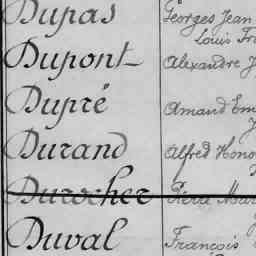 Dupas Georges Jean
Louis
Dupont Alexandre J
Dupré Amand Em
Durand Alfred Hono
Durocher Pierre Mar
Duval François